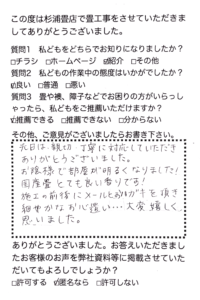 この度は杉浦畳店で畳工事をさせていただきまし
てありがとうございました。
質問1　私どもをどちらでお知りになりましたか？
□チラシ　□ホームページ　☑紹介　□その他
質問2　私どもの作業中の態度はいかがでしたか？
☑良い　□普通　□悪い
質問3　畳や襖、障子などでお困りの方がいらっし
ゃったら、私どもをご推薦いただけますか？
☑推薦できる　□推薦できない　□分からない
その他、ご意見がございましたらお書き下さい。
先日は親切、丁寧に対応していただき
ありがとうございました。
お陰様で部屋が明るくなりました！
国産畳とても良い香りです！
施工の前後にメールとおハガキを頂き
細やかなお心遣い…大変嬉しく
思いました。
ありがとうございました。お答えいただきまし
たお客様のお声を弊社資料等に掲載させていた
だいてもよろしでしょうか？
□許可する　☑匿名なら　□許可しない